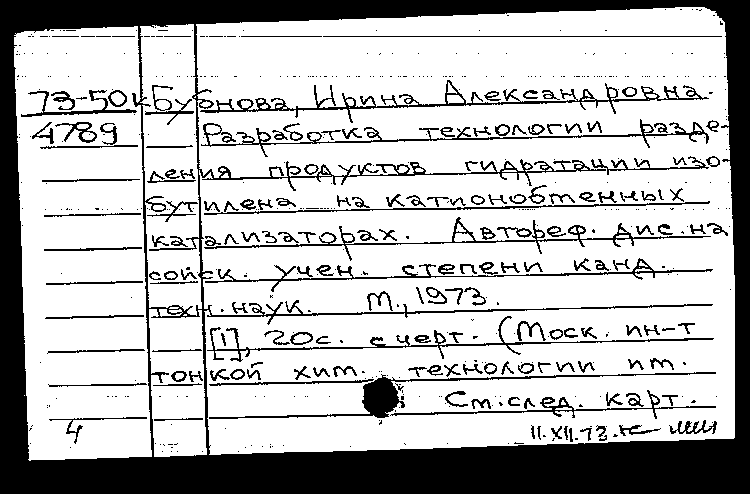 73-50к Бубнова, Ирина Александровна.
4789 Разработка технологии разде-
ления продуктов гидратации изо-
бутилена на катионобтенных
катализаторах. Автореф. дис. на
сойск. учен. степени канд.
техн. наук. М., 1973.
[1], 20с. с черт. (Моск. ин-т
тонкой хим. технологии им.
См. след. карт.
4 11.XII.73.